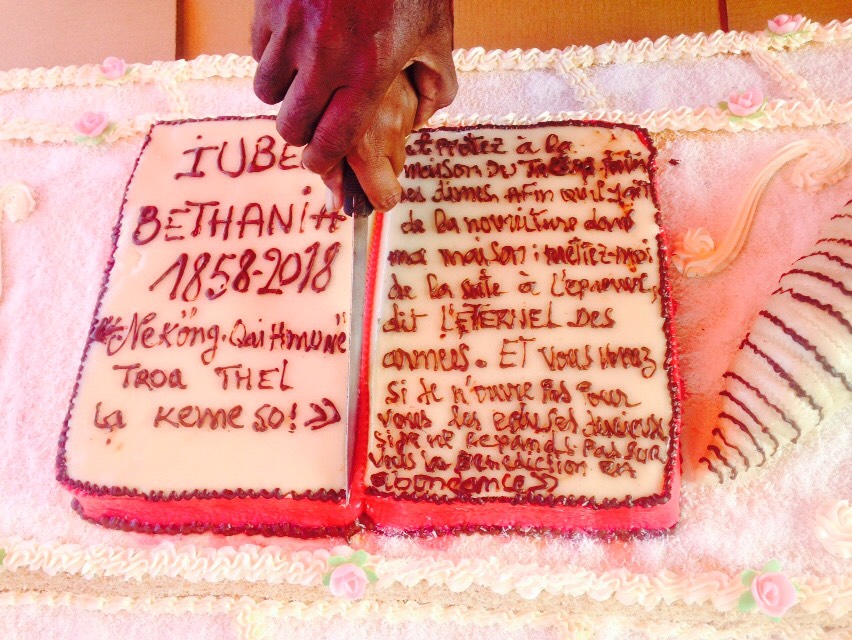 IUBE
BETHANIA
1858-2018
"Nekông. Qaihmune"
TROA THEL
La Keme so! »
Apportez à la
maison du Trésor toutes
les dîmes, Afin qu'il y ait
de la nourriture dans
ma maison; mettez-moi
de la sorte à l'épreuve,
dit L'ETERNEL DES
armées. ET vous verrez
si je n'ouvre pas pour
vous les écluses des cieux
si je ne répands pas sur
vous la bénédiction en
abondance »